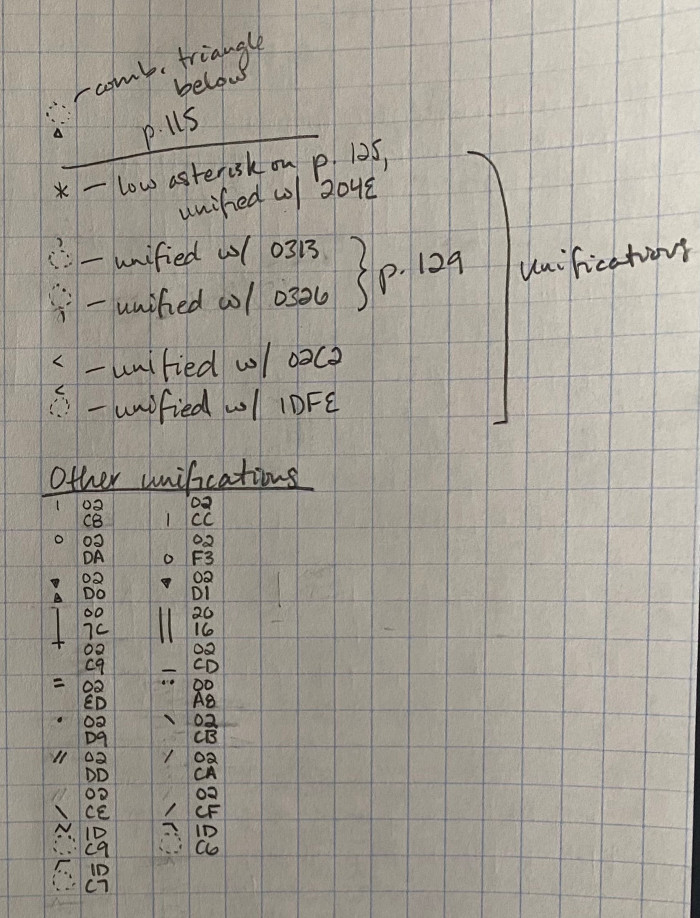 comb. triangle
below
p.115
* – low asterisk on p. 125,
unified w/ 204E
– unified w/ 0313
– unified w/ 0326 } p. 129
< – unified w/ 02C2
– unified w/ 1DFE
unifications
Other unifications
02 02
CB CC
02 02
DA F3
02 02
D0 D1
00 20
7C 16
02 02
C9 CD
= 02 00
ED A8
02 \ 02
D9 CB
// 02 / 02
DD CA
02 02
\ CE / CF
1D 1D
C9 C6
1D
C7